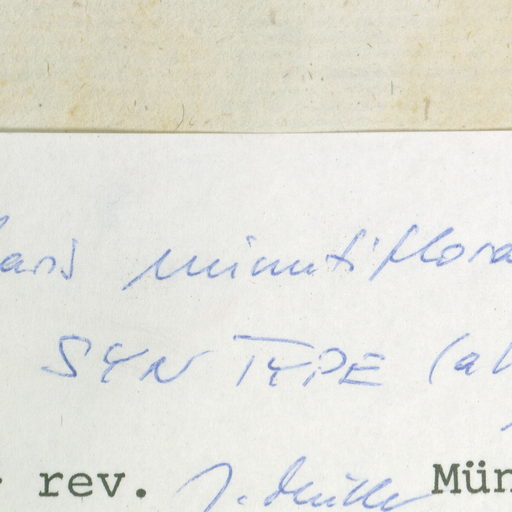 minutiflora
SYNTYPE
rev. J. Müller Mün